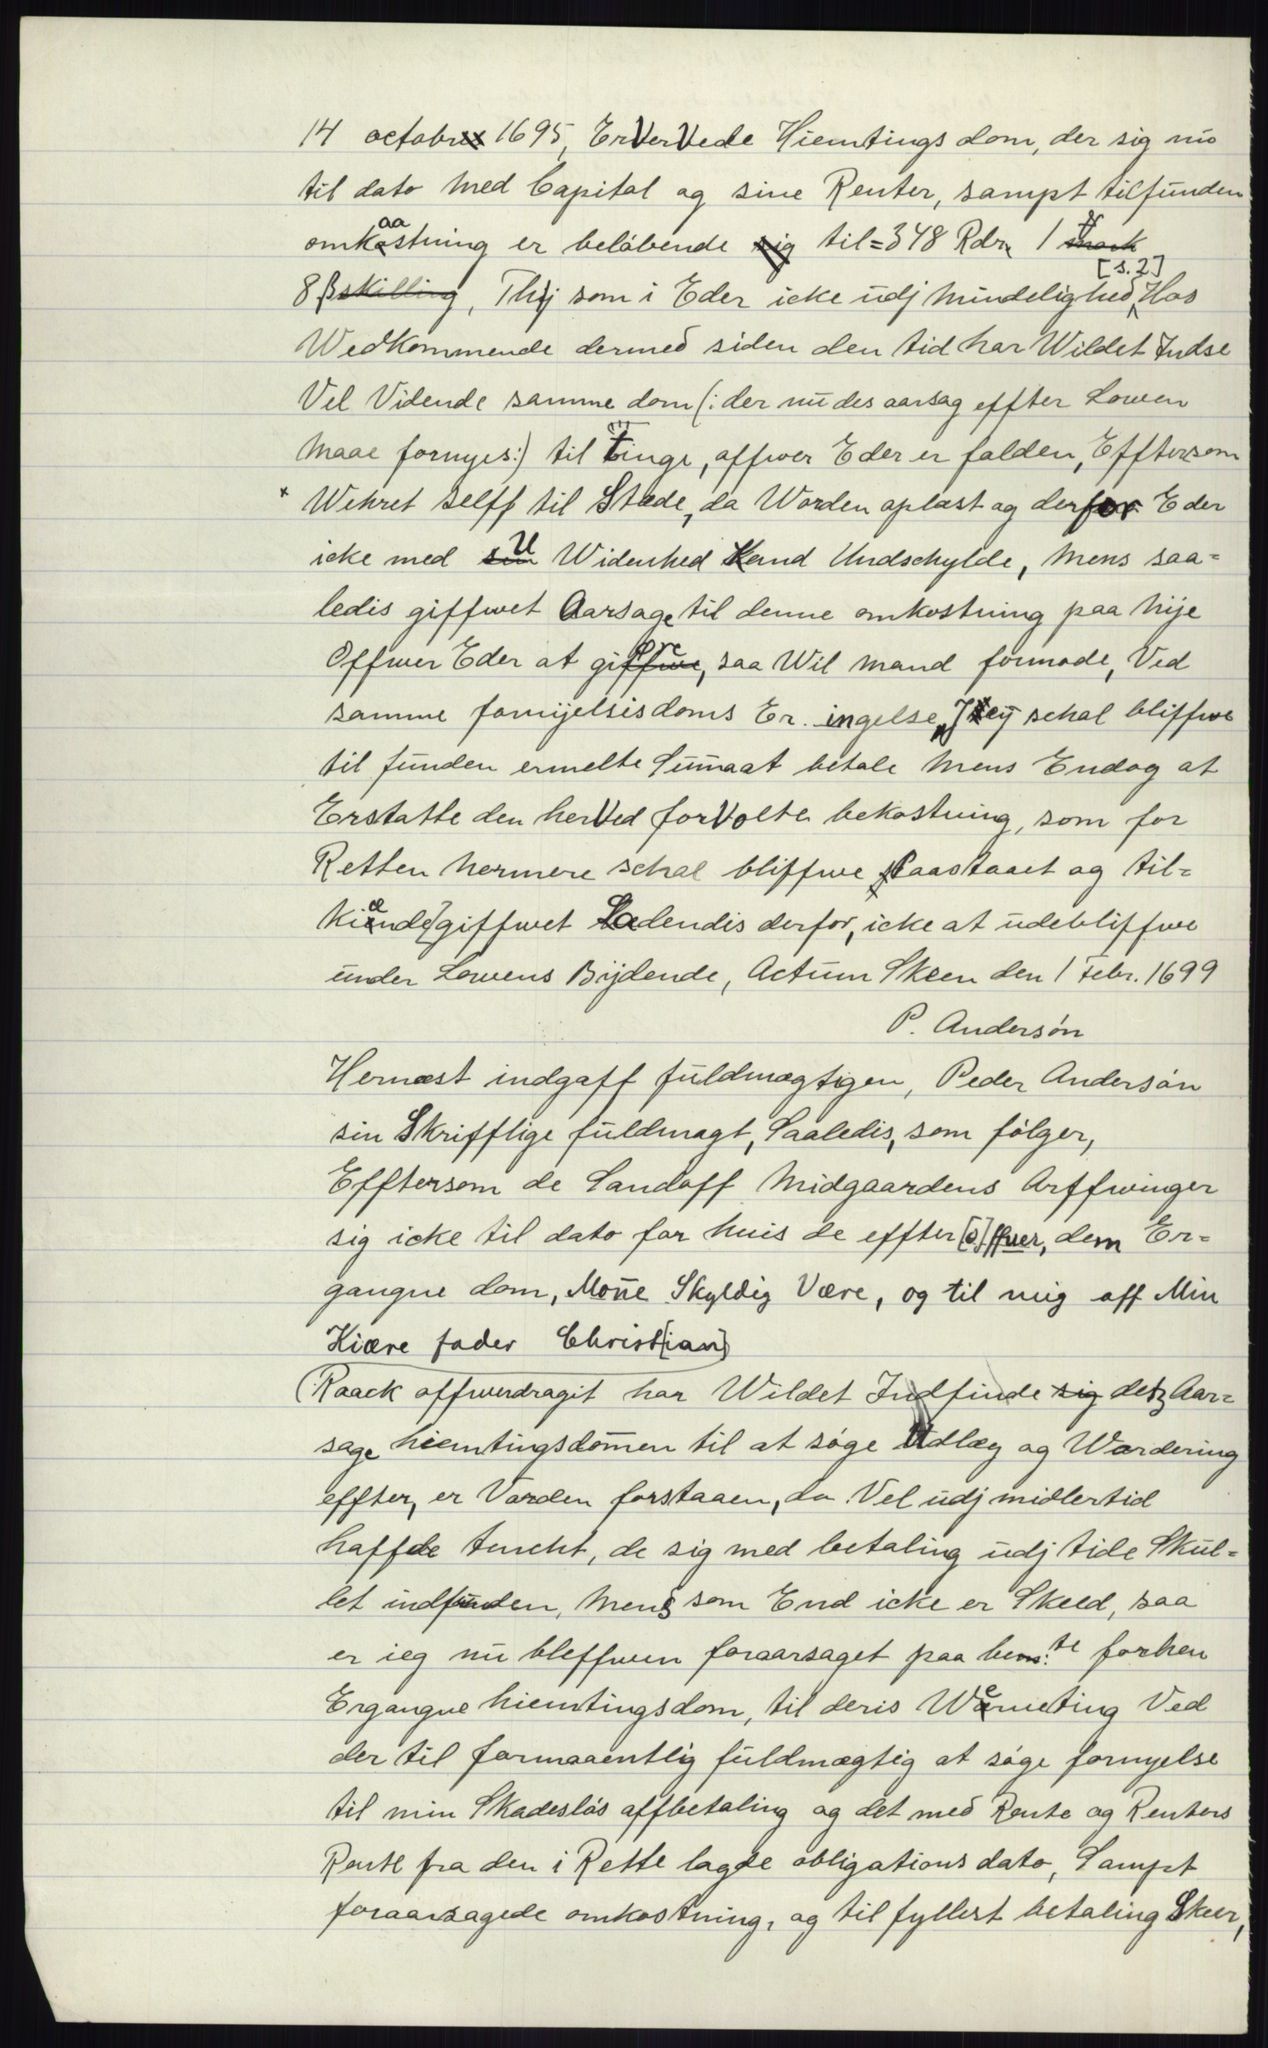 14 octobris 1695, ErVerVede Hiemtings dom, der sig nu
til dato med Capital og sine Renter, sampt tilfunden
omkaastning er beløbende til = 348 Rdr. 1
8 β, Thj som i Eder icke udj mindelighed [s. 2] Hos
Wedkommende dermed siden den tid har Wildet Indse
Vel Vidende samme dom (: der nu des aarsag effter Lowen
maae fornyes :) til Tinge, offwer Eder er falden, Efftersom
x Wehret selff til Stæde, da Worden oplæst og derfor Eder
icke med U Widenhed Kand Undschylde, mens saa=
ledis giffwet Aarsage til denne omkostning paa nije
Offwer Eder at giøre, saa Wil mand formode, Ved
samme fornijelsis doms Er. ingelse, Jeij schal bliffwe
til funden ermelte Sumaat betale mens Endog at
Erstatte den herVed forVolte bekostning, som for
Retten nermere schal bliffwe Paastaaet og til=
kiænde] giffwet Ladendis derfor, icke at udebliffwe
under Lowens Bijdende, Actum Skeen den 1 Febr. 1699
P. Andersøn
Hernæst indgaff fuldmægtigen, Peder Andersøn
sin Skrifftlige fuldmagt, Saaledis, som følger,
Efftersom de Landoff Midgaardens Arffwinger
sig icke til dato for huis de effter [o]ffuer, dem Er=
gangne dom, Mone Skyldig Være, og til mig aff Min
Kiære fader Christ[ian]
(Raack offwerdragit har Wildet Indfinde detz Aar=
sage hiemtingsdommen til at søge Udlæg og Wardering
effter, er Vorden forstaaen, da Vel udj midlertid
haffde tencht, de sig med betaling udj tide Skul=
let indfunden, mens som End icke er Skeed, saa
er ieg nu bleffwen foraarsaget paa bem:te forhen
Ergangne hiemtingsdom, til deris Werneting Ved
der til formaaentlig fuldmægtig at søge fornyelse
til min Skadesløs affbetaling og det med Rente og Renters
Rente fra den i Rette lagde obligations dato, Sampt
foraarsagede omkostning, og til fyllest betaling Skeer,